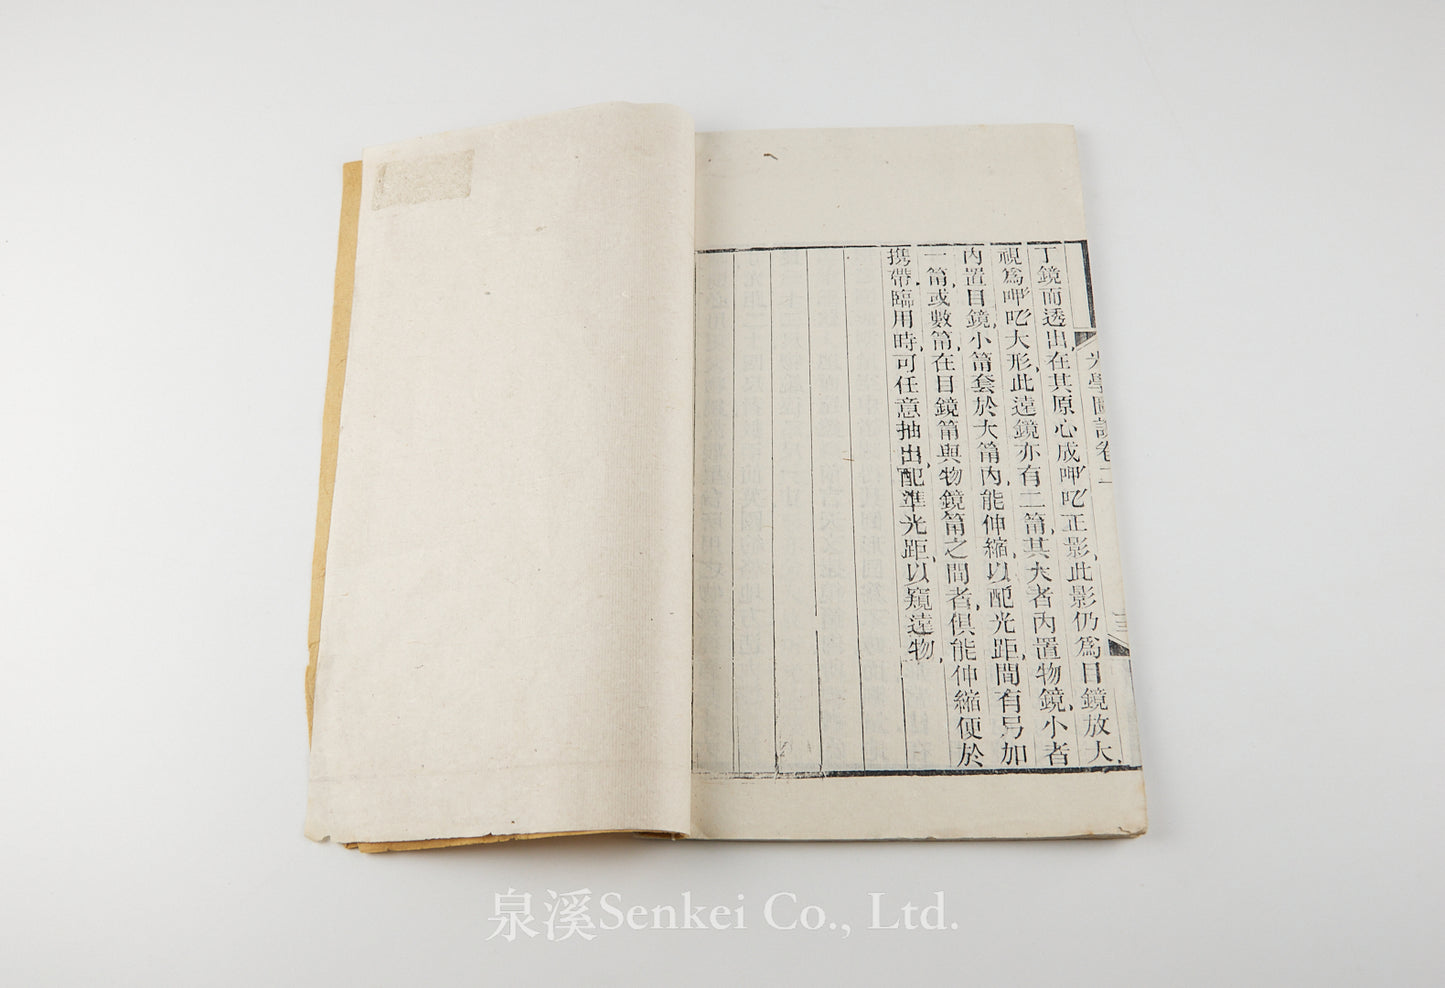 丁鏡而透出,在其原心成呷叱正影,此影仍爲目鏡放大,
視爲呷叱大形,此遠鏡亦有二筩,其大者內置物鏡,小者
內置目鏡,小筩套於大筩內,能伸縮以配光距,間有另加
一筩,或數筩,在目鏡筩與物鏡筩之間者,俱能伸縮便於
攜帶,臨用時,可任意抽出,配準光距,以窺遠物,
光學圖說卷二
泉溪Senkei Co., Ltd.